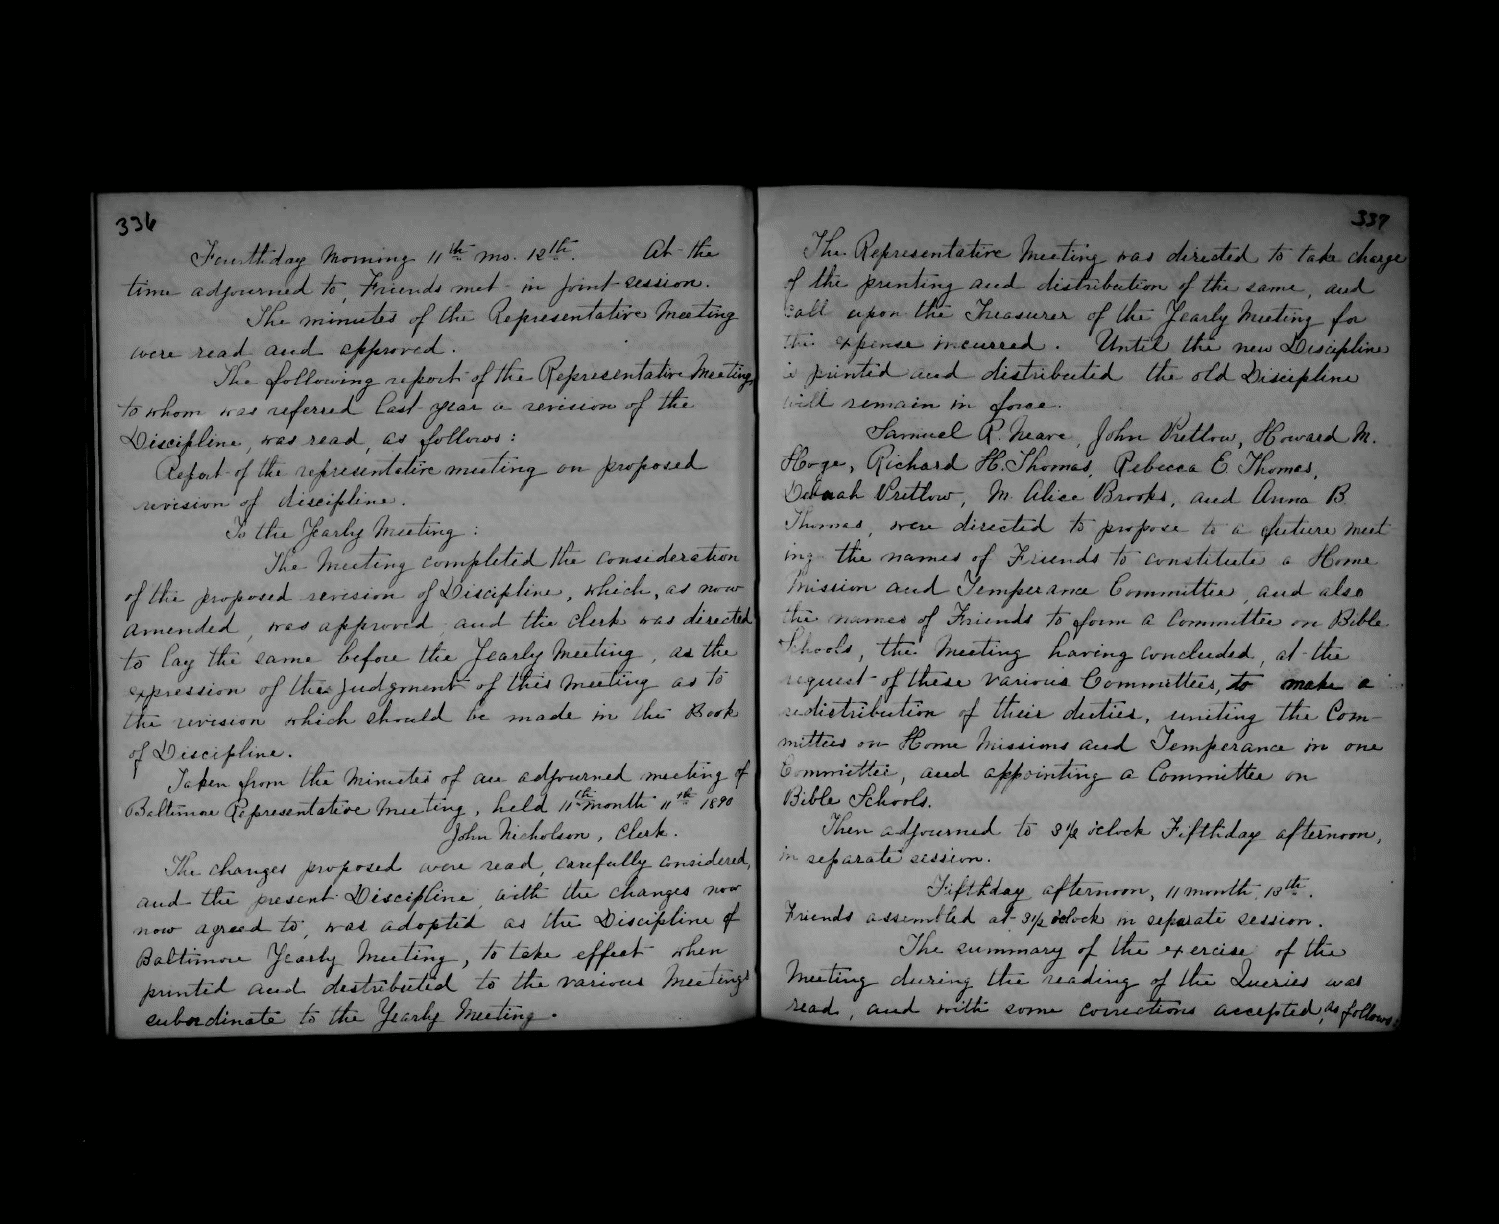 336
Fourthday Morning 11th mo. 12th. At the
time adjourned to, Friends met in joint session.
The minutes of the Representative Meeting
were read and approved.
The following report of the Representative Meeting
to whom was referred last year a revision of the
Discipline, was read, as follows:
Report of the representative meeting on proposed
revision of discipline.
To the Yearly Meeting:
The Meeting completed the consideration
of the proposed revision of Discipline, which, as now
amended, was approved, and the clerk was directed
to lay the same before the Yearly Meeting, as the
expression of the judgment of this Meeting as to
the revision which should be made in the Book
of Discipline.
Taken from the Minutes of an adjourned meeting of
Baltimore Representative Meeting, held 11th month 11th 1890
John Nicholson, Clerk.
The changes proposed were read, carefully considered,
and the present Discipline, with the changes now
now agreed to, was adopted as the Discipline of
Baltimore Yearly Meeting, to take effect when
printed and destributed to the various Meetings
subordinate to the Yearly Meeting.
337
The Representative Meeting was directed to take charge
of the printing and distribution of the same, and
call upon the Treasurer of the Yearly Meeting for
the expense incurred. Until the new Discipline
is printed and distributed the old Discipline
will remain in force.
Samuel R. Neave, John Pretlow, Howard M.
Hoge, Richard H. Thomas, Rebecca E Thomas,
Deborah Pretlow, M. Alice Brooks, and Anna B
Thomas, were directed to propose to a future meet-
ing the names of Friends to constitute a Home
Mission and Temperance Committee, and also
the names of Friends to form a Committee on Bible
Schools, the Meeting having concluded, at the
request of these various Committees, to make a
redistribution of their duties, uniting the Com-
mittees on Home Missions and Temperance in one
Committee, and appointing a Committee on
Bible Schools.
Then adjourned to 3 1/2 o'clock Fifthday afternoon,
in separate session.
Fifthday afternoon, 11 month, 13th.
Friends assembled at 3 1/2 o'clock in separate session.
The summary of the exercise of the
Meeting during the reading of the Queries was
read, and with some corrections accepted, as follows: